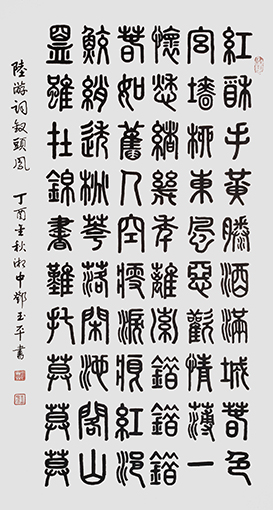 紅酥手黃縢酒滿城春色
宮墻柳東風惡歡情薄一
懷愁緒幾年離索錯錯錯
春如舊人空瘦淚痕紅浥
鮫綃透桃花落閑池閣山
盟雖在錦書難托莫莫莫
陸游詞釵頭鳳 丁酉秋湘中鄧玉平書